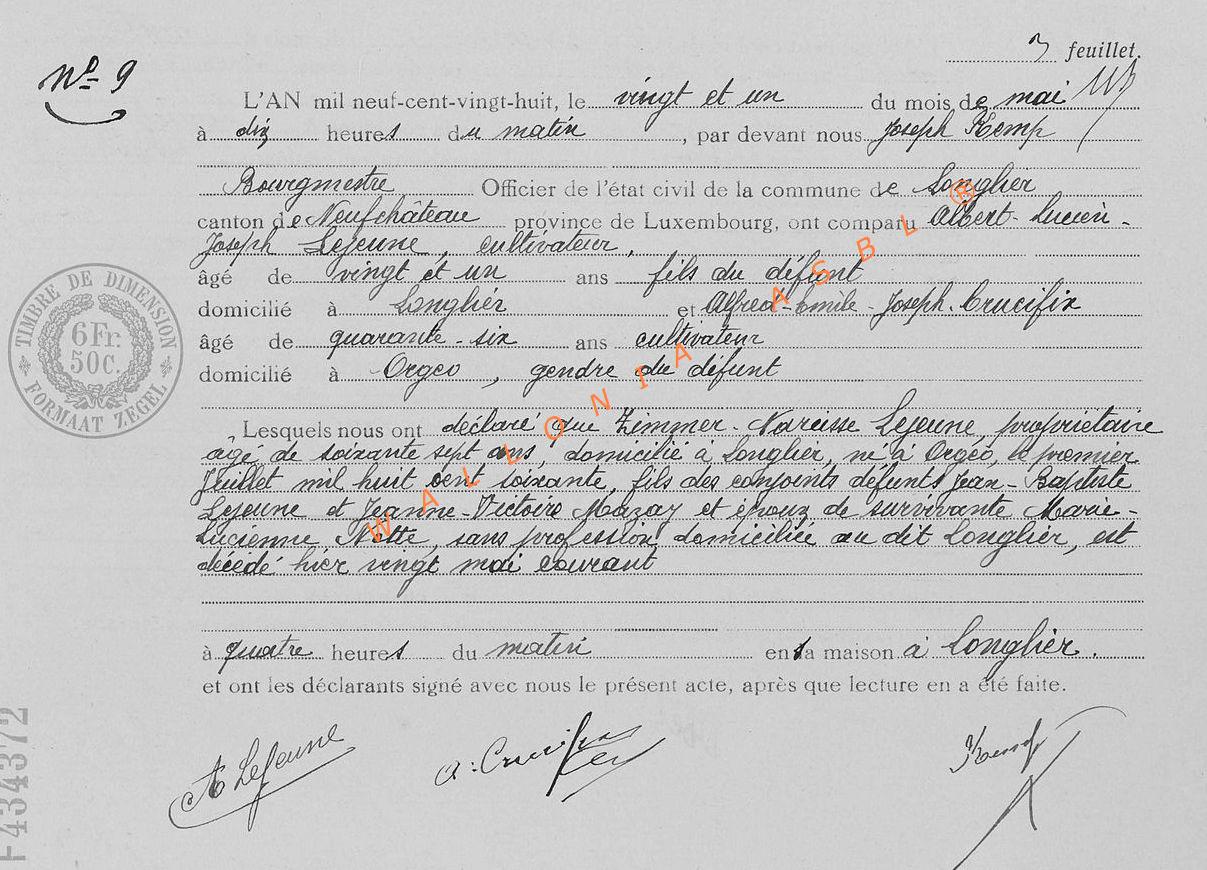 3 feuillet.
Nº 9
L'AN mil neuf-cent-vingt-huit, le vingt et un du mois de mai
à dix heures du matin, par devant nous Joseph Kemp
Bourgmestre Officier de l'état civil de la commune de Longlier
canton de Neufchâteau province de Luxembourg, ont comparu Albert-Lucien-
Joseph Lejeune, cultivateur,
âgé de vingt et un ans fils du défunt
domicilié à Longlier et Alfred-Emile-Joseph Crucifix
âgé de quarante-six ans cultivateur
domicilié à Orgeo, gendre du défunt
Lesquels nous ont déclaré que Zimmer-Narcisse Lejeune, propriétaire
âgé de soixante sept ans, domicilié à Longlier, né à Orgéo, le premier
Juillet mil huit cent soixante, fils des conjoints défunts Jean-Baptiste
Lejeune et Jeanne-Victoire Mazay et époux de survivante Marie-
Lucienne Notte, sans profession, domiciliée au dit Longlier, est
décédé hier vingt mai courant
à quatre heures du matin en sa maison à Longlier.
et ont les déclarants signé avec nous le présent acte, après que lecture en a été faite.
A Lejeune
A. Crucifix
Kemp
TIMBRE DE DIMENSION
6 Fr.
50 C.
FORMAAT ZEGEL
F434372
WALLONIA ASBL ®